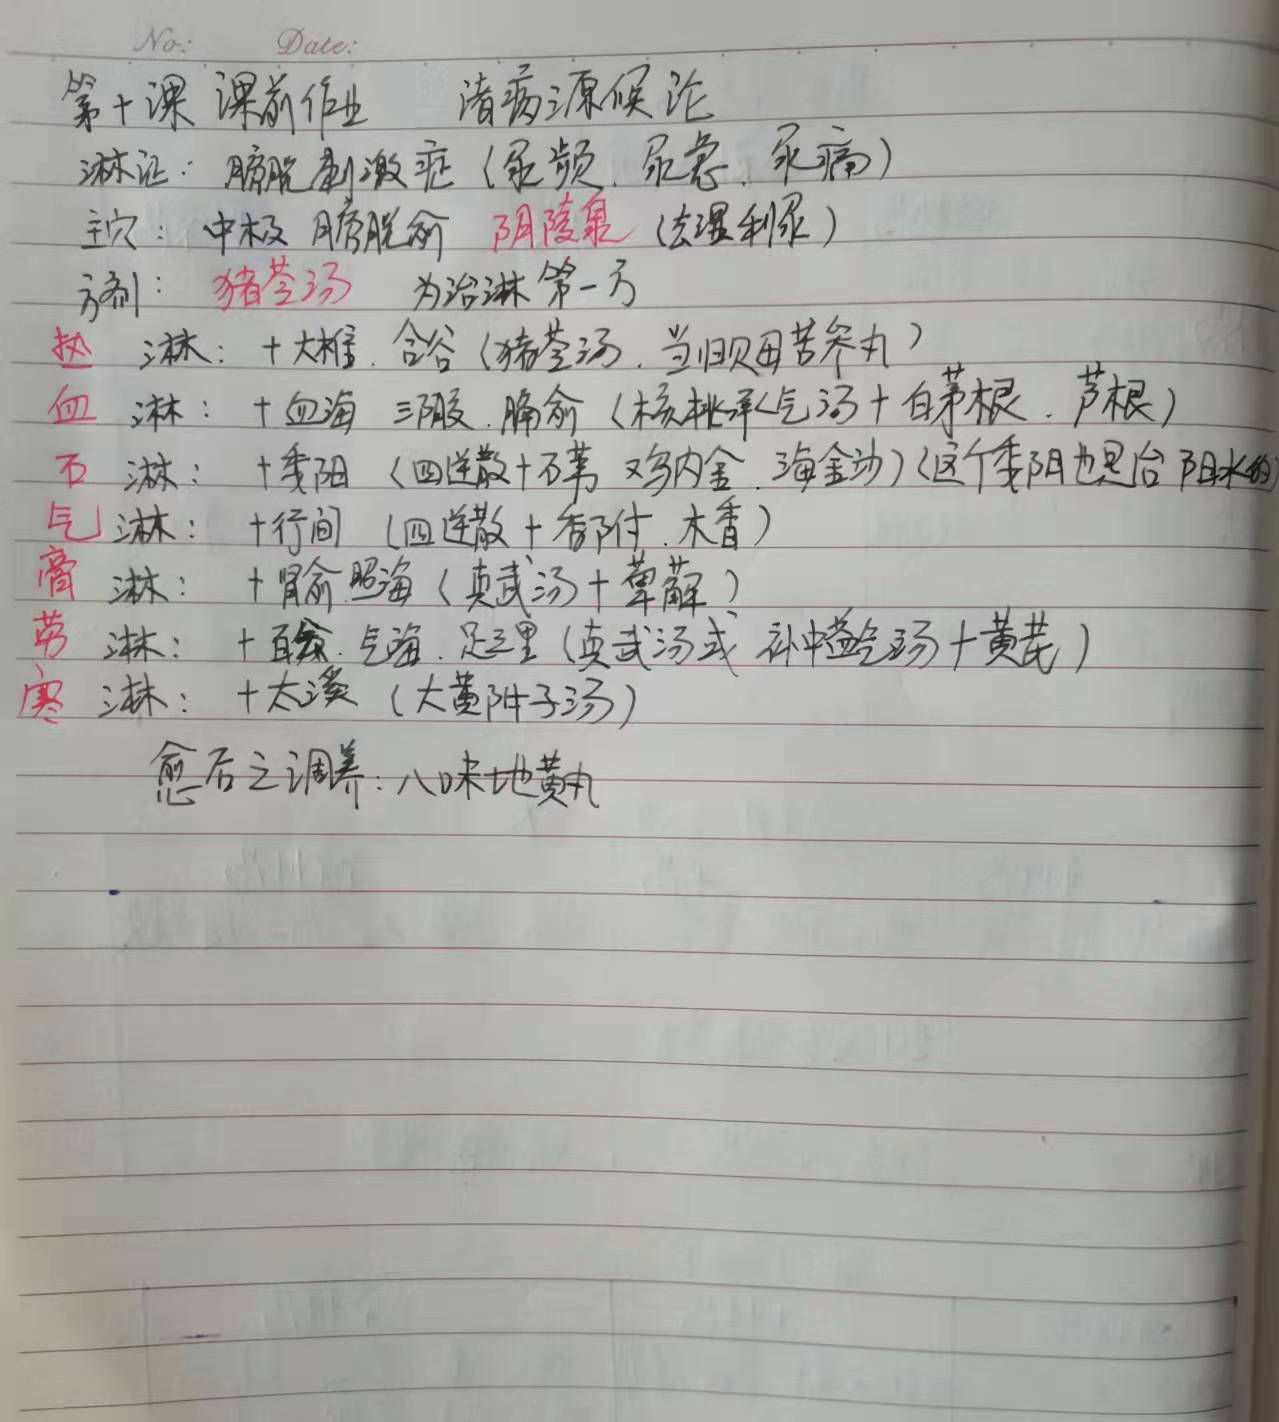 No: Date:
第十课 课前作业 诸病源候论
淋证: 膀胱刺激症(尿频、尿急、尿痛)
主穴: 中极 膀胱俞 阴陵泉 (去湿利尿)
方剂: 猪苓汤 为治淋第一方
热淋: +大椎.合谷(猪苓汤.当归贝母苦参丸)
血淋: +血海 三阴交.膈俞(核桃承气汤+白茅根.芦根)
石淋: +委阳(四逆散+石苇 鸡内金.海金沙)(这个委阳也是治阳水的)
气淋: +行间(四逆散+香附.木香)
膏淋: +肾俞.照海(真武汤+萆薢)
劳淋: +百会.气海.足三里(真武汤或补中益气汤+黄芪)
寒淋: +太溪(大黄附子汤)
愈后之调养: 八味地黄丸